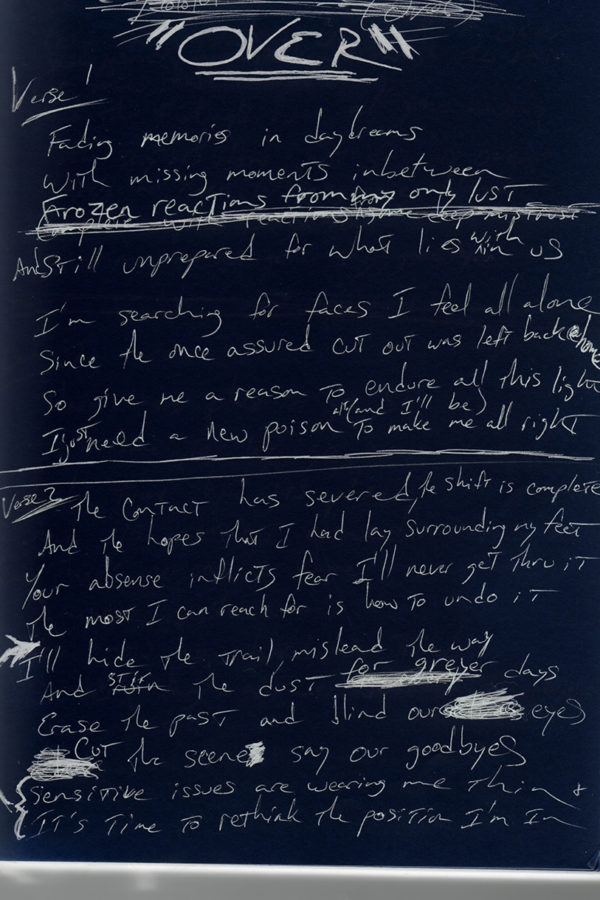 "OVER"
Verse 1
Fading memories in daydreams
With missing moments inbetween
Frozen reactions from only lust
And still unprepared for what lies within us
I'm searching for faces I feel all alone
Since the once assured cut out was left back @ home
So give me a reason to endure all this light
I just need a new poison (and I'll be) to make me all right
Verse 2 The contact has severed, the shift is complete
And the hopes that I had lay surrounding my feet
Your absense inflicts fear I'll never get thru it
The most I can reach for is how to undo it
I'll hide the trail, mislead the way
And stir the dust for greyer days
Erase the past and blind our eyes
Cut the scene say our goodbyes
Sensitive issues are wearing me thin &
It's time to rethink the position I'm in